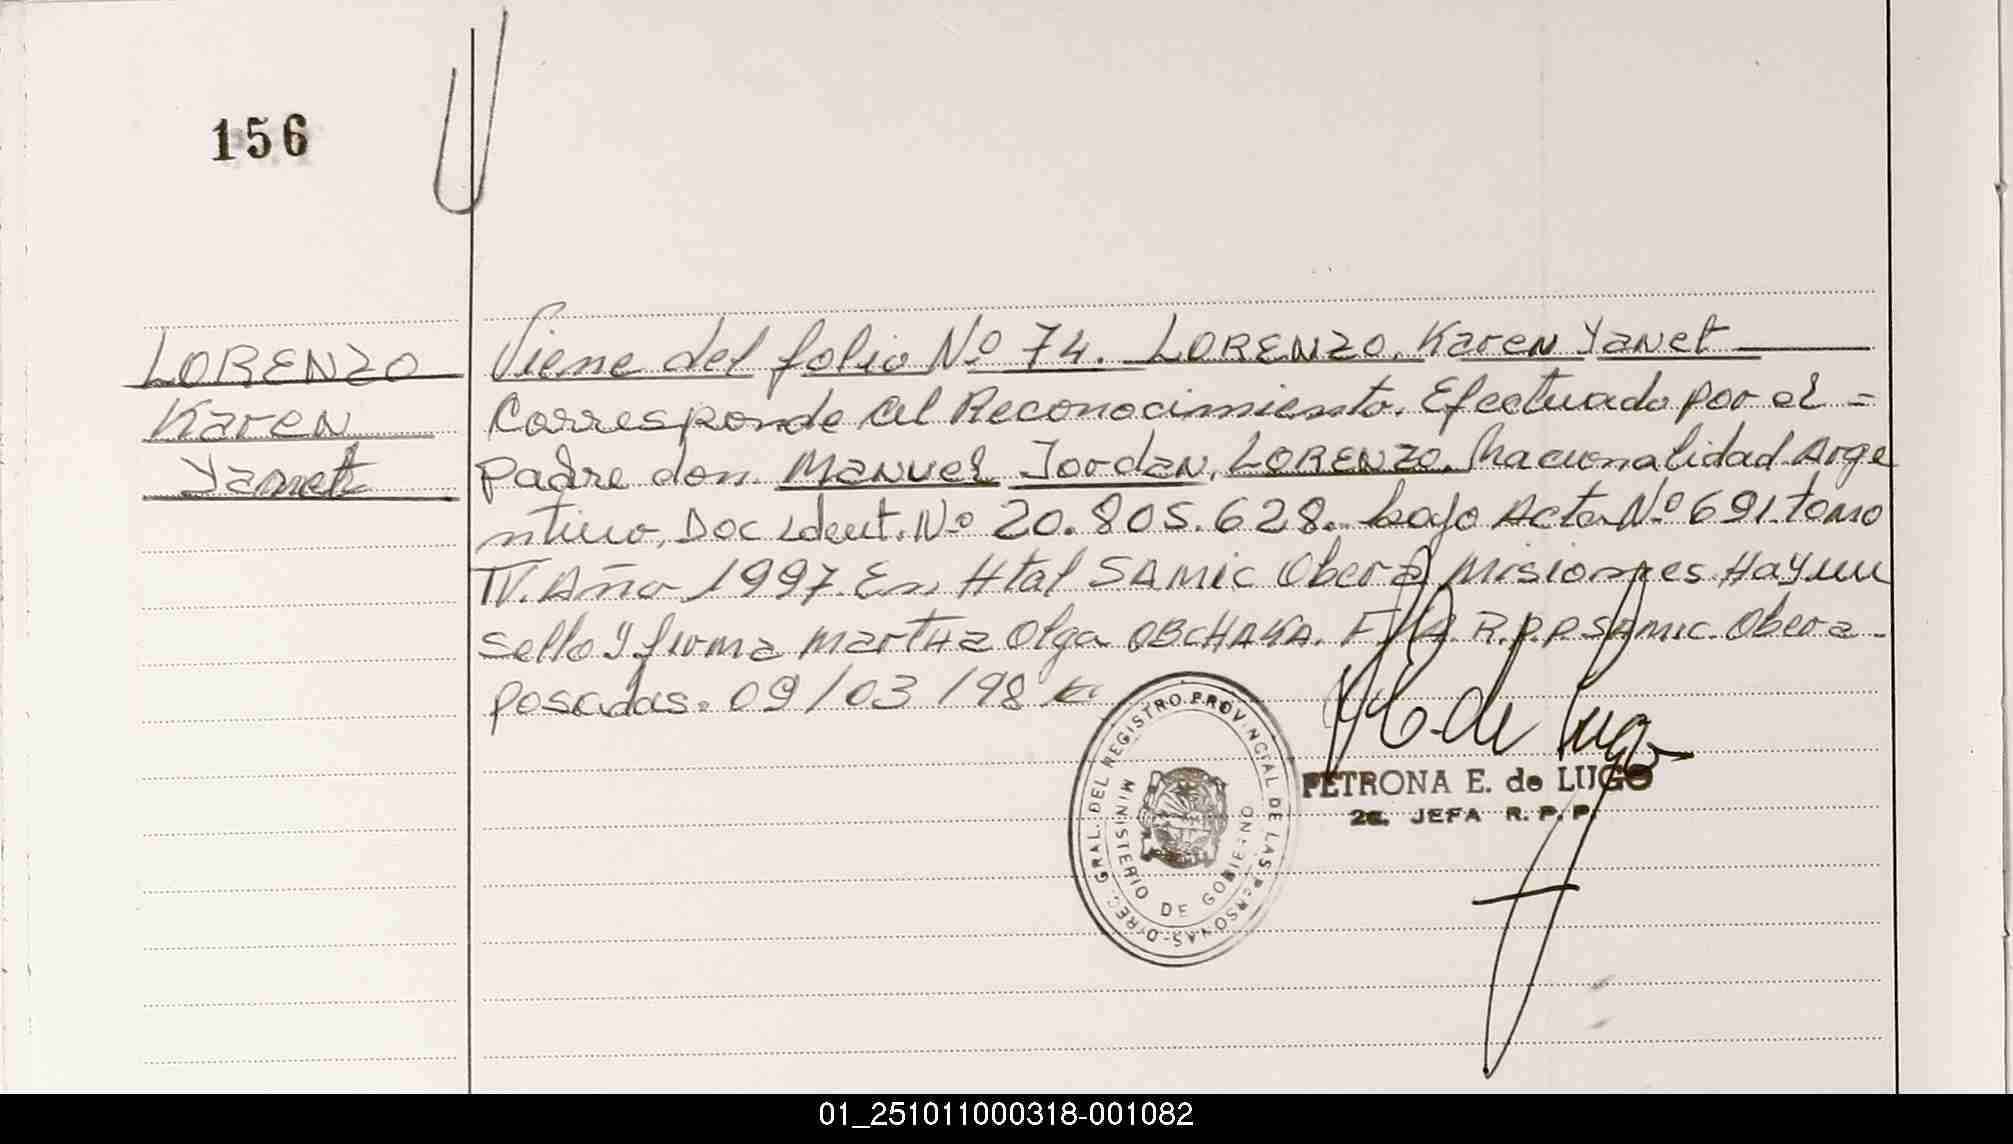 156
LORENZO
Karen
Yanet
Viene del folio Nº 74. LORENZO, Karen Yanet
Corresponde al Reconocimiento. Efectuado por el =
padre don. Manuel Jordan, LORENZO. Nacionalidad Arge
ntino, Doc ident. Nº 20.805.628. bajo Acta Nº 691. tomo
IV. Año 1997. En Htal SAMIC Oberá Misiones. Hay un
sello y firma Martha Olga OBCHAKA. R.P.P SAMIC. Obera -
posadas. 09/03/98
DIREC. GRAL. DEL REGISTRO PROVINCIAL DE LAS PERSONAS
MINISTERIO DE GOBIERNO
PETRONA E. de LUGO
2a. JEFA R. P. P.
01_251011000318-001082